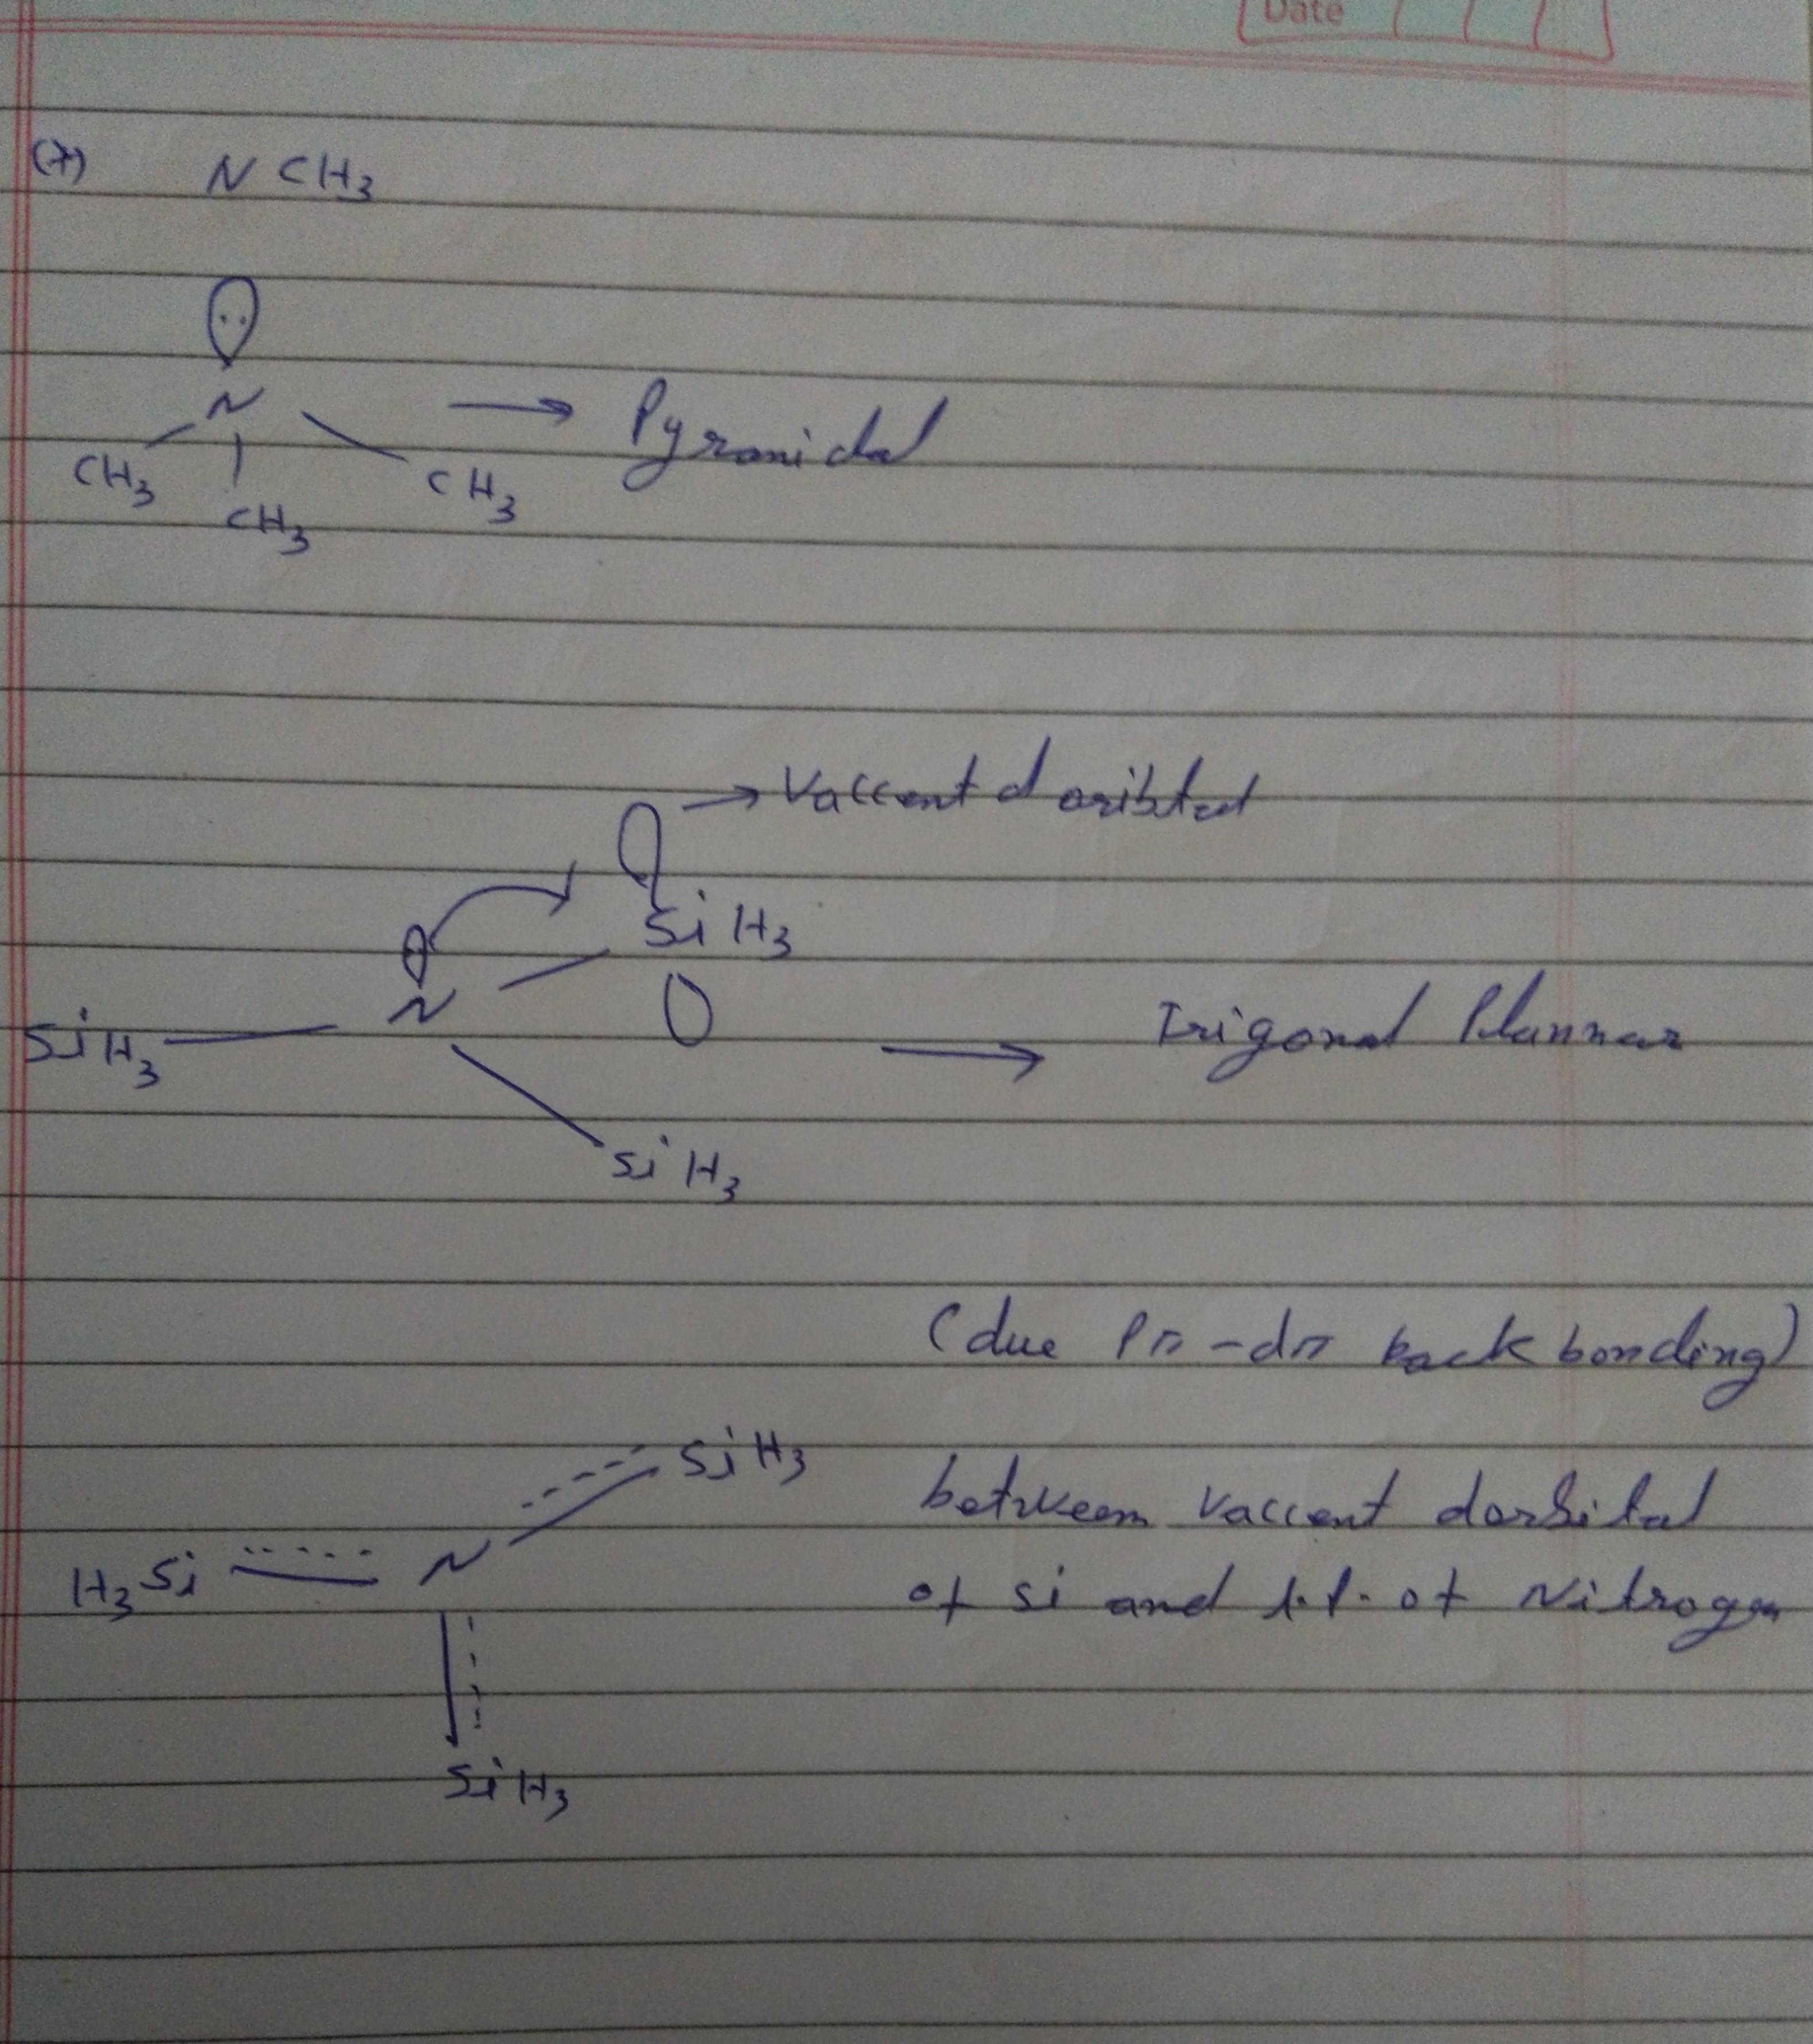 Date
(7) N CH3
N
CH3 CH3
CH3
→ Pyramidal
→ Vaccent d oribtal
SiH3
N
SiH3
→ Trigonal Plannar
SiH3
(due Pπ-dπ back bonding)
SiH3
between vaccent dorbital
H3Si N
of si and l.p. of Nitrogen
SiH3